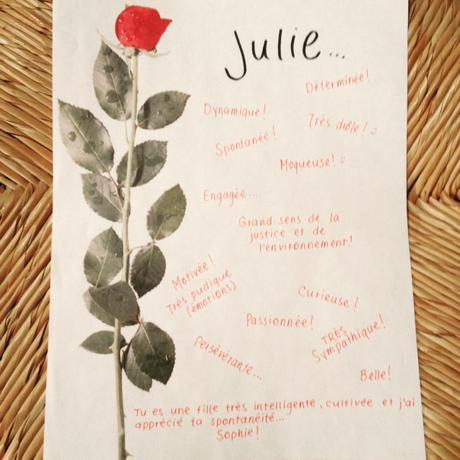 Julie...
Déterminée!
Dynamique!
Très drôle! :)
Spontanée!
Moqueuse! :)
Engagée...
Grand sens de la
justice et de
l'environnement!
Motivée!
Très pudique
(émotions)
Curieuse!
Passionnée!
TRÈS
Sympathique!
Persévérante...
Belle!
Tu es une fille très intelligente, cultivée et j'ai
apprécié ta spontanéité...
Sophie!